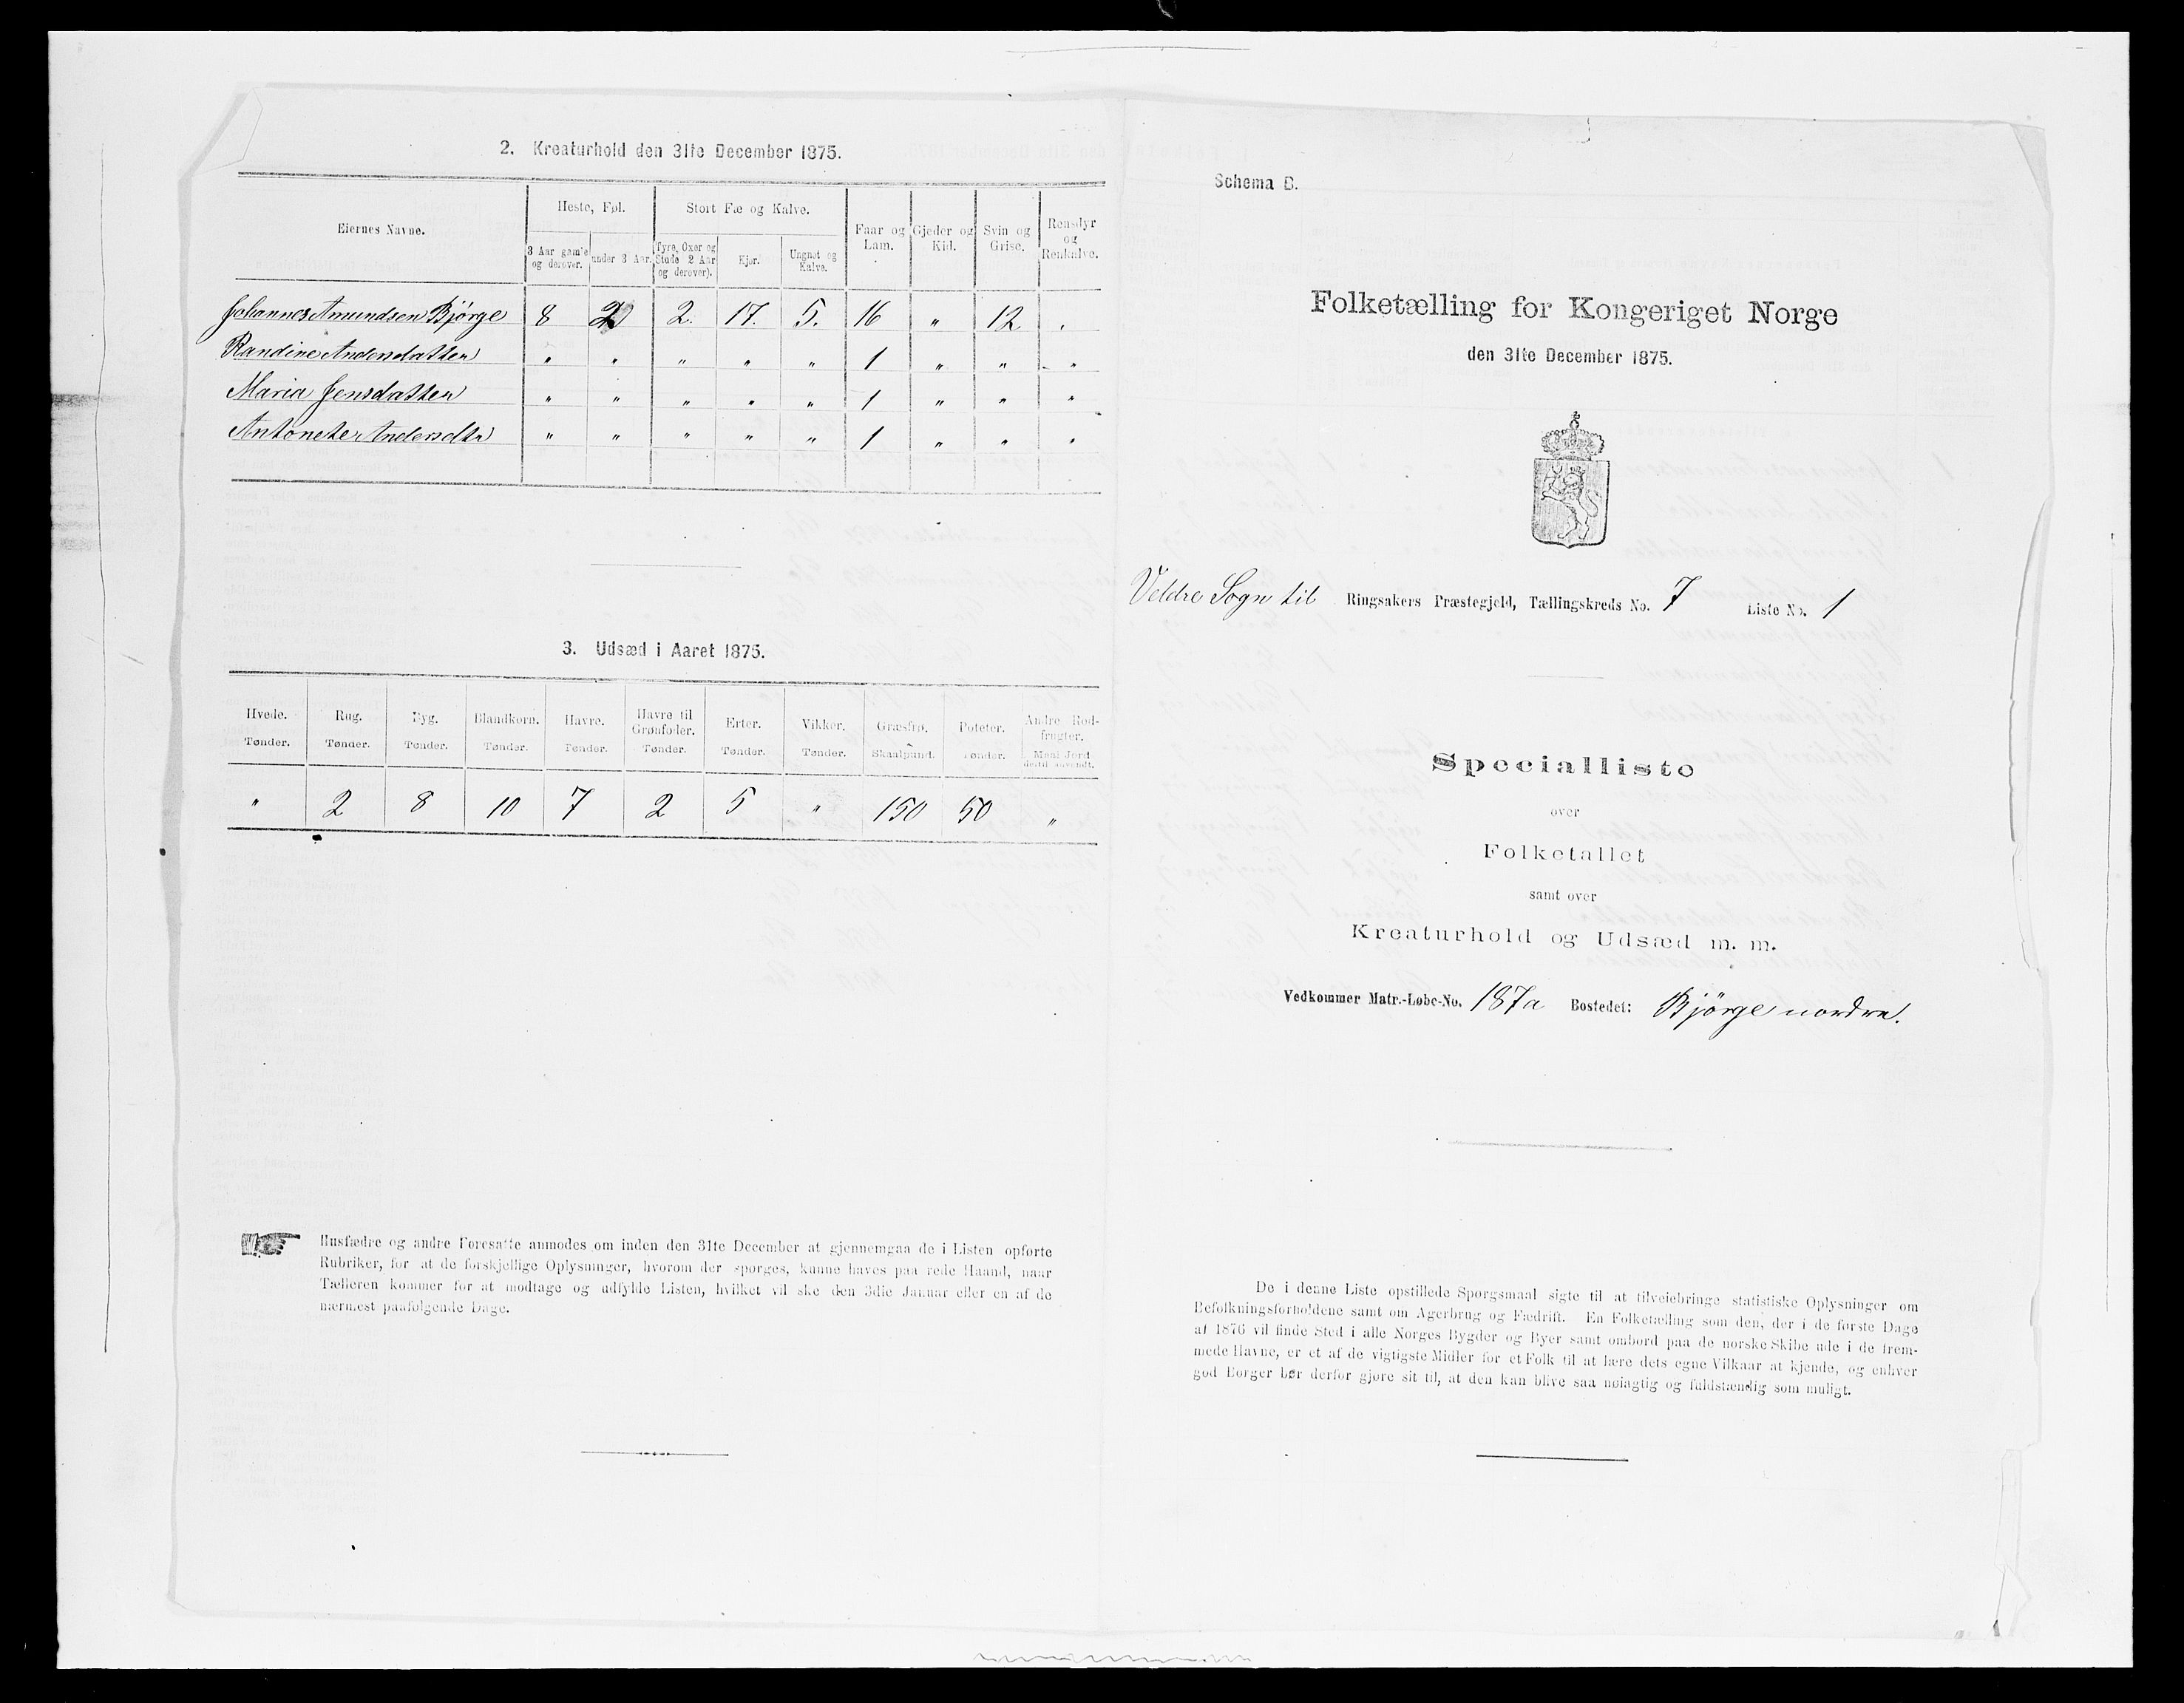 2. Kreaturhold den 31te December 1875.
Eiernes Navne.
Heste, Føl.
Stort Fæ og Kalve.
Faar og Lam.
Gjeder og Kid.
Svin og Grise.
Rensdyr og Renkalve.
3 Aar gamle og derover.
under 3 Aar.
Tyre, Oxer og Stude 2 Aar og derover).
Kjør.
Ungnøt og Kalve.
Johannes Amundsen Bjørge 8 2 2. 17. 5. 16 " 12 .
Randine Andersdatter " " " " " 1 " " "
Maria Jensdatter " " " " " 1 " " "
Antonete Andersdtr " " " " " 1 " " "
3. Udsæd i Aaret 1875.
Hvede. Rug. Byg. Blandkorn. Havre. Havre til Grønfoder. Erter. Vikker. Græsfrø. Poteter. Andre Rodfrugter.
Tønder. Tønder. Tønder. Tønder. Tønder. Tønder. Tønder. Tønder. Skaalpund. Tønder. Maal Jord dertil anvendt.
" 2 8 10 7 2 5 " 150 50 "
Husfædre og andre Foresatte anmodes om inden den 31te December at gjennemgaa de i Listen opførte
Rubriker, for at de forskjellige Oplysninger, hvorom der spørges, kunne haves paa rede Haand, naar
Tælleren kommer for at modtage og udfylde Listen, hvilket vil ske den 3die Januar eller en af de
nærmest paafølgende Dage.
Schema B.
Folketælling for Kongeriget Norge
den 31te December 1875.
Veldre Sogn til Ringsakers Præstegjeld, Tællingskreds No. 7 Liste No. 1
Specialliste
over
Folketallet
samt over
Kreaturhold og Udsæd m. m.
Vedkommer Matr.-Løbe-No. 187a Bostedet: Bjørge nordre.
De i denne Liste opstillede Spørgsmaal sigte til at tilveiebringe statistiske Oplysninger om
Befolkningsforholdene samt om Agerbrug og Fædrift. En Folketælling som den, der i de første Dage
af 1876 vil finde Sted i alle Norges Bygder og Byer samt ombord paa de norske Skibe ude i de frem-
mede Havne, er et af de vigtigste Midler for et Folk til at lære dets egne Vilkaar at kjende, og enhver
god Borger bør derfor gjøre sit til, at den kan blive saa nøiagtig og fuldstændig som muligt.